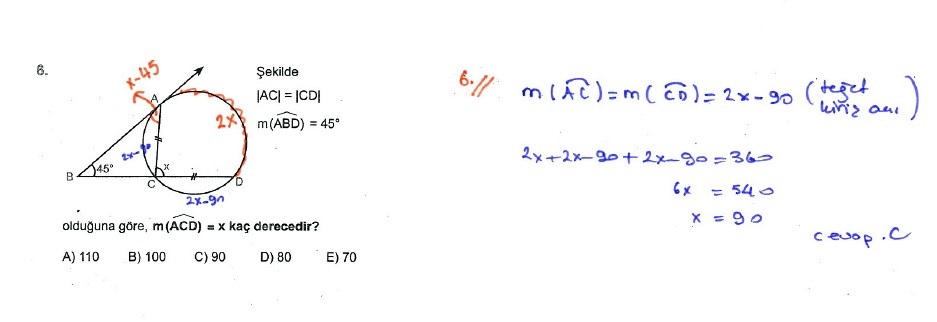 6.
Şekilde
|AC| = |CD|
m(ABD) = 45°
x-45
A
2x
2x-90
x
B
45°
C
D
2x-90
olduğuna göre, m(ACD) = x kaç derecedir?
A) 110 B) 100 C) 90 D) 80 E) 70
6.//
m(AC) = m(CD) = 2x-90 (teğet
kiriş açı)
2x+2x-90+2x-90=360
6x = 540
x = 90
cevap.C